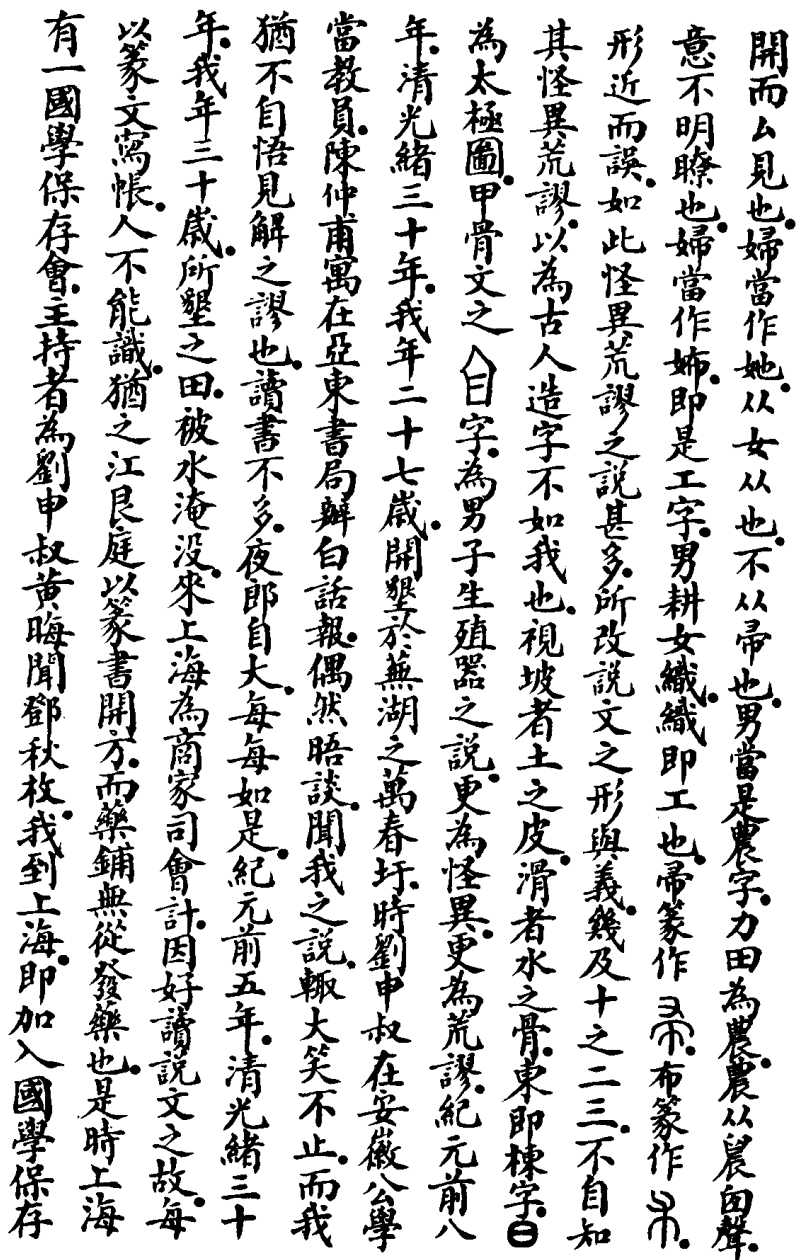 開而厶見也。婦當作她。从女从也。不从帚也。男當是農字。力田為農。農从䢅囟聲。
意不明瞭也。婦當作㛔。即是工字。男耕女織。織即工也。帚篆作。布篆作。
形近而誤。如此怪異荒謬之說甚多。所改說文之形與義。幾及十之二三。不自知
其怪異荒謬。以為古人造字不如我也。視坡者土之皮。滑者水之骨。東即棟字。日
為太極圖。甲骨文之字。為男子生殖器之說。更為怪異。更為荒謬。紀元前八
年。清光緒三十年。我年二十七歲。開墾於蕪湖之萬春圩。時劉申叔在安徽公學
當教員。陳仲甫寓在亞東書局辦白話報。偶然晤談。聞我之說。輒大笑不止。而我
猶不自悟見解之謬也。讀書不多。夜郎自大。每每如是。紀元前五年。清光緒三十
年。我年三十歲。所墾之田。被水淹没。來上海為商家司會計。因好讀說文之故。每
以篆文寫帳。人不能識。猶之江艮庭以篆書開方。而藥鋪無從發藥也。是時上海
有一國學保存會。主持者為劉申叔黃晦聞鄧秋枚。我到上海。即加入國學保存